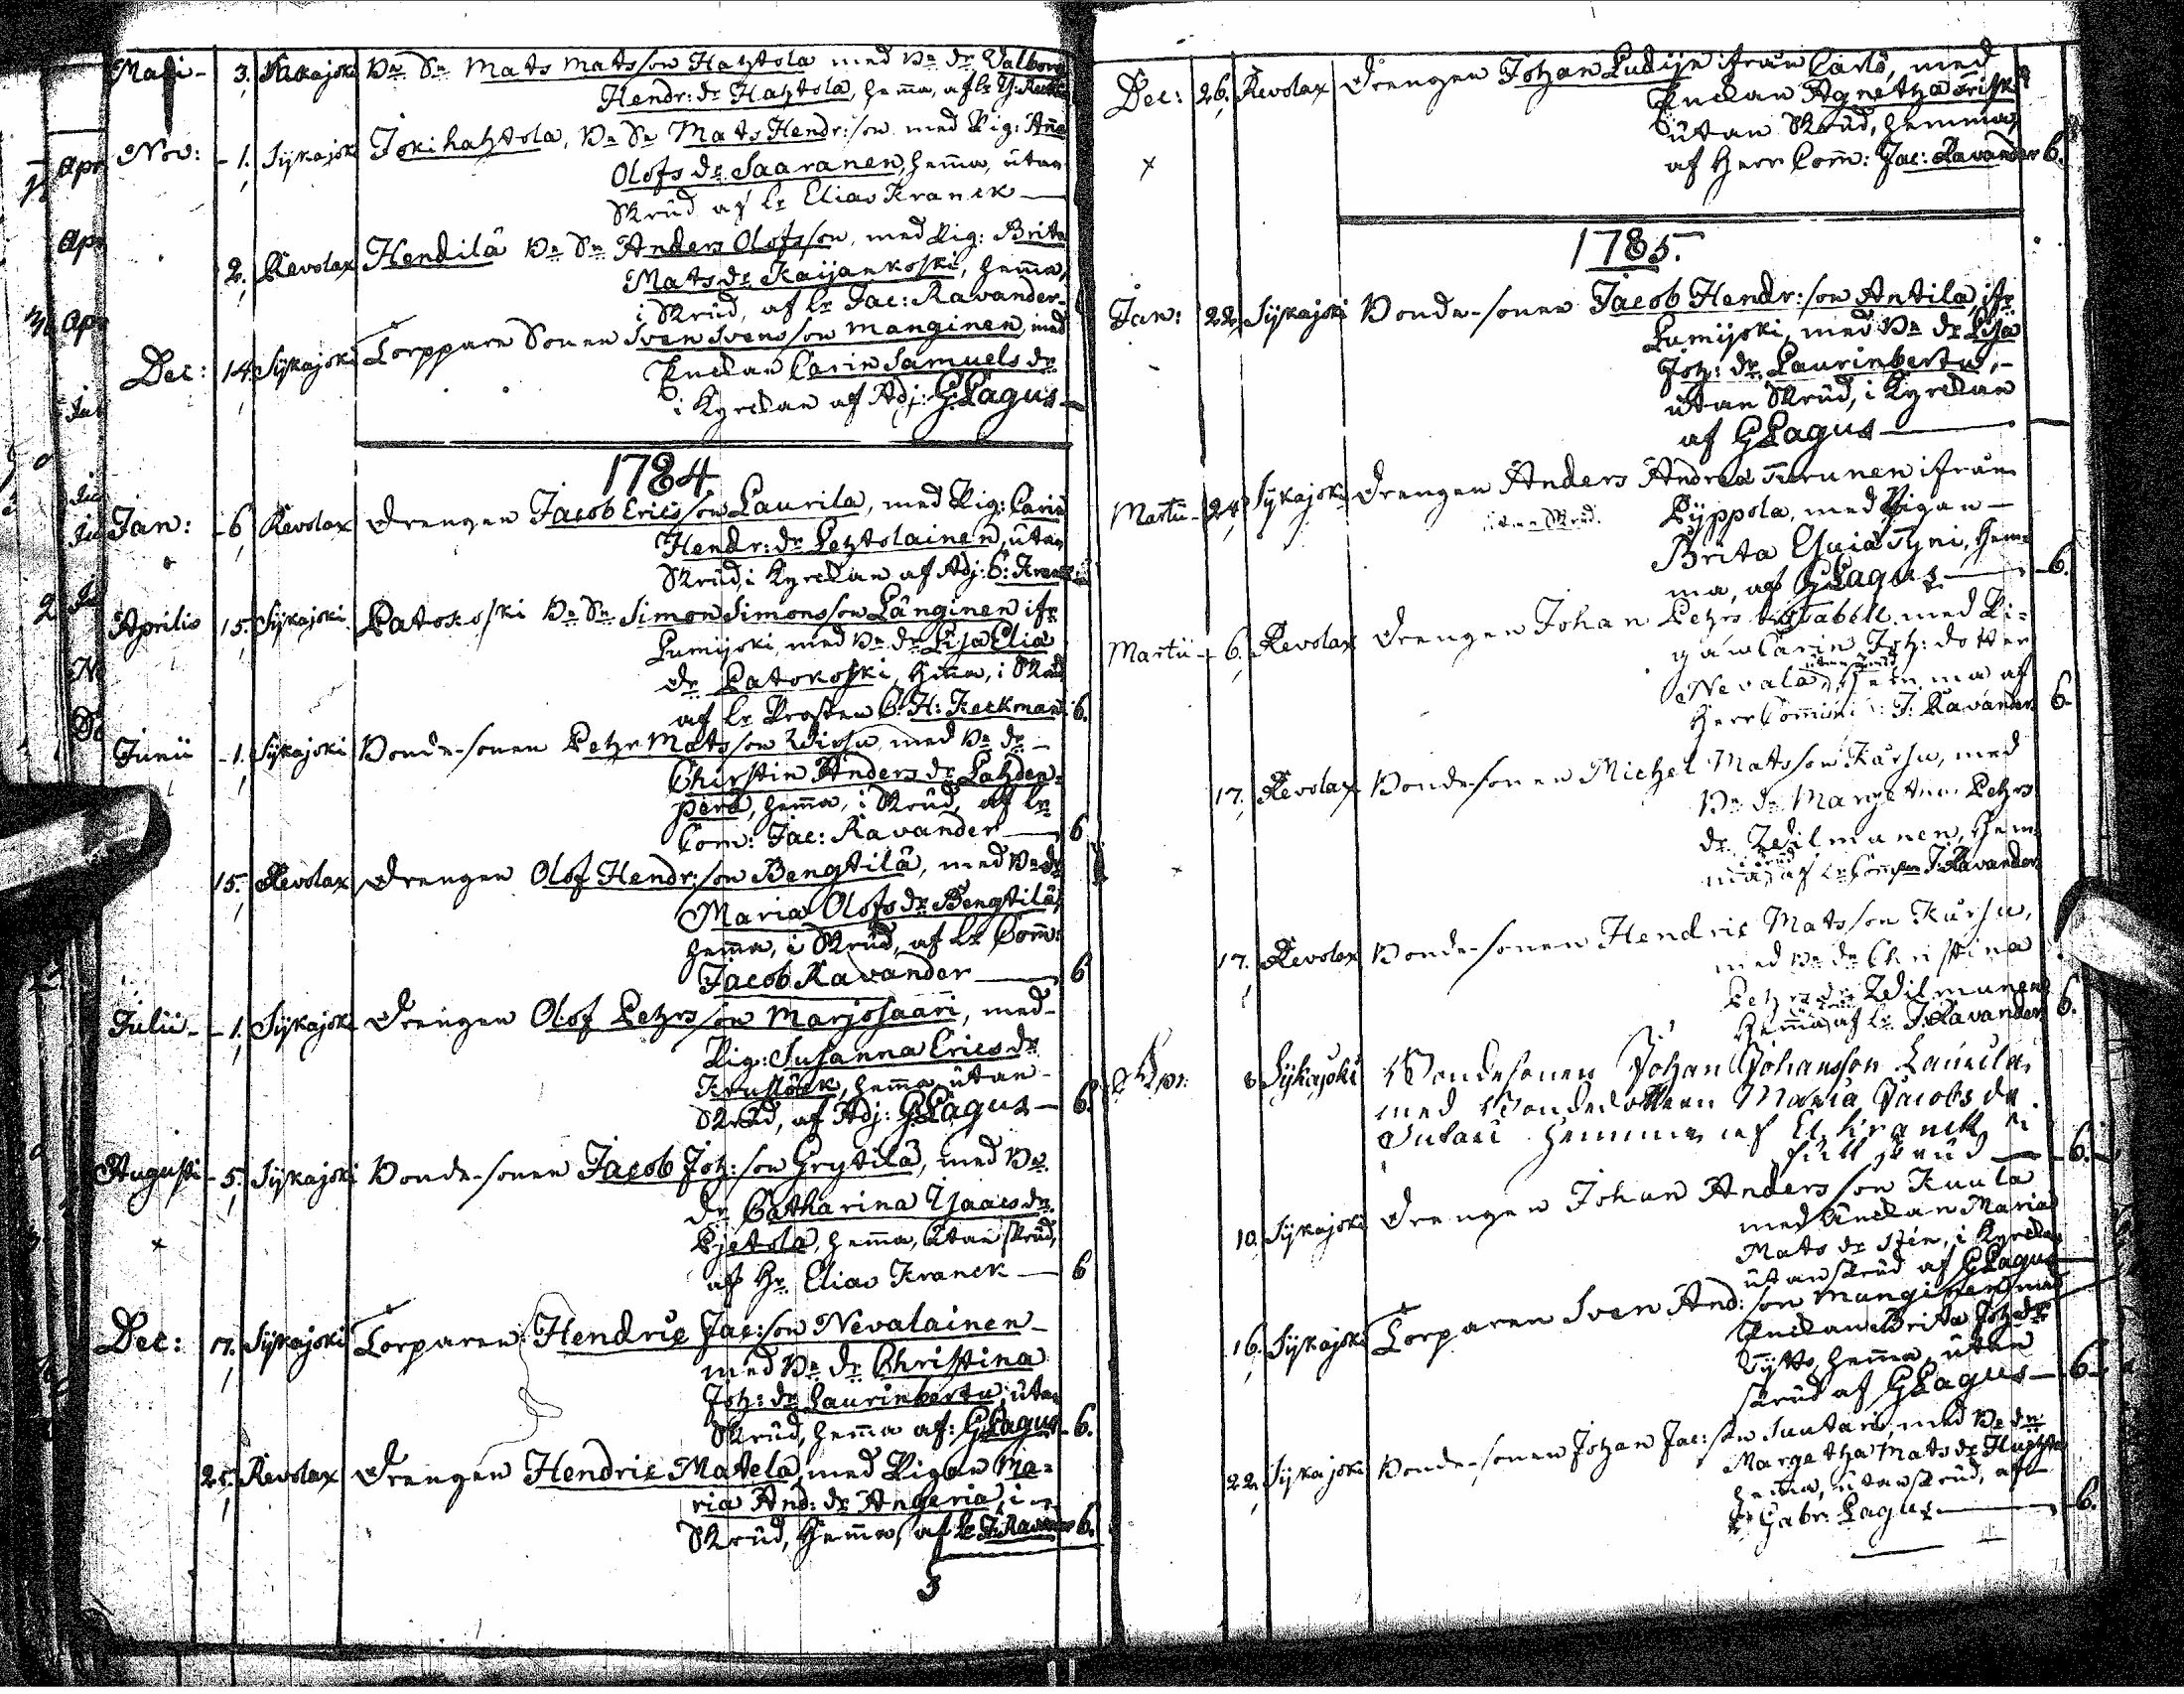 Maji - 3. Sikajoki Bde Sn Mats Mats son Hahtola med Bde dr Valborg
Hendr: dr Hahtola, hemma, af
Nov: - 1. Sijkajoki Jokihahtola, Bde Sn Mats Hendr: son med Pig: Anna
Olofs dr Saaranen, hemma, utan
Skrud af Hr Elias Franck
2. Revolax Hendilä Bde Sn Anders Olofsson, med Pig: Brita
Mats dr Kaijankoski, hemma,
i Skrud, af Hr Jac: Ravander
Dec: 14. Sijkajoki Torppare Sonen Sven Svensson Manginen, med
Enckan Carin Samuels dr
i Kyrckan af Adj: G: Lagus
1784
Jan: - 6 Revolax Drengen Jacob Ericsson Laurila, med Pig: Carin
Hendr: dr Pehtolainen, utan
Skrud, i Kyrckan af Adj:
Aprilis 15. Sijkajoki Patokoski Bde Sn Simon Simonsson Länginen ifr
Lumijoki, med Bde dr Lisa Elia
dr Patokoski, hemma, i Skrud
af Hr Prosten C. H: Keckman 6.
Junii - 1. Sijkajoki Bonde-sonen Pehr Matsson Wirsu, med Bde dr
Christin Anders dr Lahden-
perä, hemma, i Skrud, af Hr
Com: Jac: Ravander 6
15. Revolax Drengen Olof Hendr: son Bengtilä, med Bde dr
Maria Olofs dr Bengtilä,
hemma, i Skrud, af Hr Com:
Jacob Ravander 6
Julii - 1. Sijkajoki Drengen Olof Pehrs son Marjosaari, med
Pig: Susanna Erics dr
hemma utan
Skrud, af Adj: G Lagus 6.
Augusti - 5. Sijkajoki Bonde-sonen Jacob Joh: son Grytilä, med Bde
dr Catharina Isaacs dr
Pjetola, hemma, utan skrud,
af Hr Elias Franck 6
Dec: 17. Sijkajoki Torparen Hendric Jac: son Nevalainen
med Bde dr Christina
Joh: dr Laurinbertu, utan
Skrud, hemma af: G Lagus 6.
25. Revolax Drengen Hendric Matela, med Pigan Ma-
ria And: dr Angeria, i
Skrud, hemma, af Hr J. Ravander 6.
3
Dec: 26. Revolax Drengen Johan Ludijn ifrån Carlö, med
Enckan Agnetha Frisk
utan Skrud, hemma,
af Herr Com: Jac: Ravander 6.
1785.
Jan: 22. Sijkajoki Bonde-sonen Jacob Hendr: son Antila, ifr
Lumijoki, med Bde dr Lisa
Joh: dr Laurinbertu,
utan Skrud, i Kyrckan
af G Lagus
Martii - 24. Sijkajoki Drengen Anders Andrea Turunen ifrån
utan Skrud. Pyppola, med Pigan
Brita Tyni, hem-
ma, af G Lagus 6.
Martii - 6. Revolax Drengen Johan Pehrs med Pi-
gan Carin Joh: dotter
utan skrud
Nevala, hemma af
Herr Commin: J. Ravander 6.
17. Revolax Bonde-sonen Michel Matsson Karhu, med
Bde dr Margetha Pehrs
dr Wilmunen, hem-
i skrud
ma, af Hr J. Ravander
17. Revolax Bonde-sonen Hendric Matsson Karhu,
med Bde dr Christina
Pehrs dr Wilmunen
hemma, af Hr J. Ravander 6.
Apr: 8 Sijkajoki Bondesonen Johan Johansson Laurila,
med Bondedottern Maria Jacobs dr
hemma af El. Franck i
full skrud 6.
10. Sijkajoki Drengen Johan Anders son Kuula
med Enckan Maria
Mats dr Sten, i Kyrckan
utan skrud af G Lagus
16. Sijkajoki Torparen Sven And: son Manginen, med
Enckan Brita Joh: dr
hemma utan
skrud af G Lagus 6.
22. Sijkajoki Bonde-sonen Johan Jac: son Suutari, med Bde dr
Margetha Mats dr
hemma, utan skrud, af
Gabr. Lagus 6.